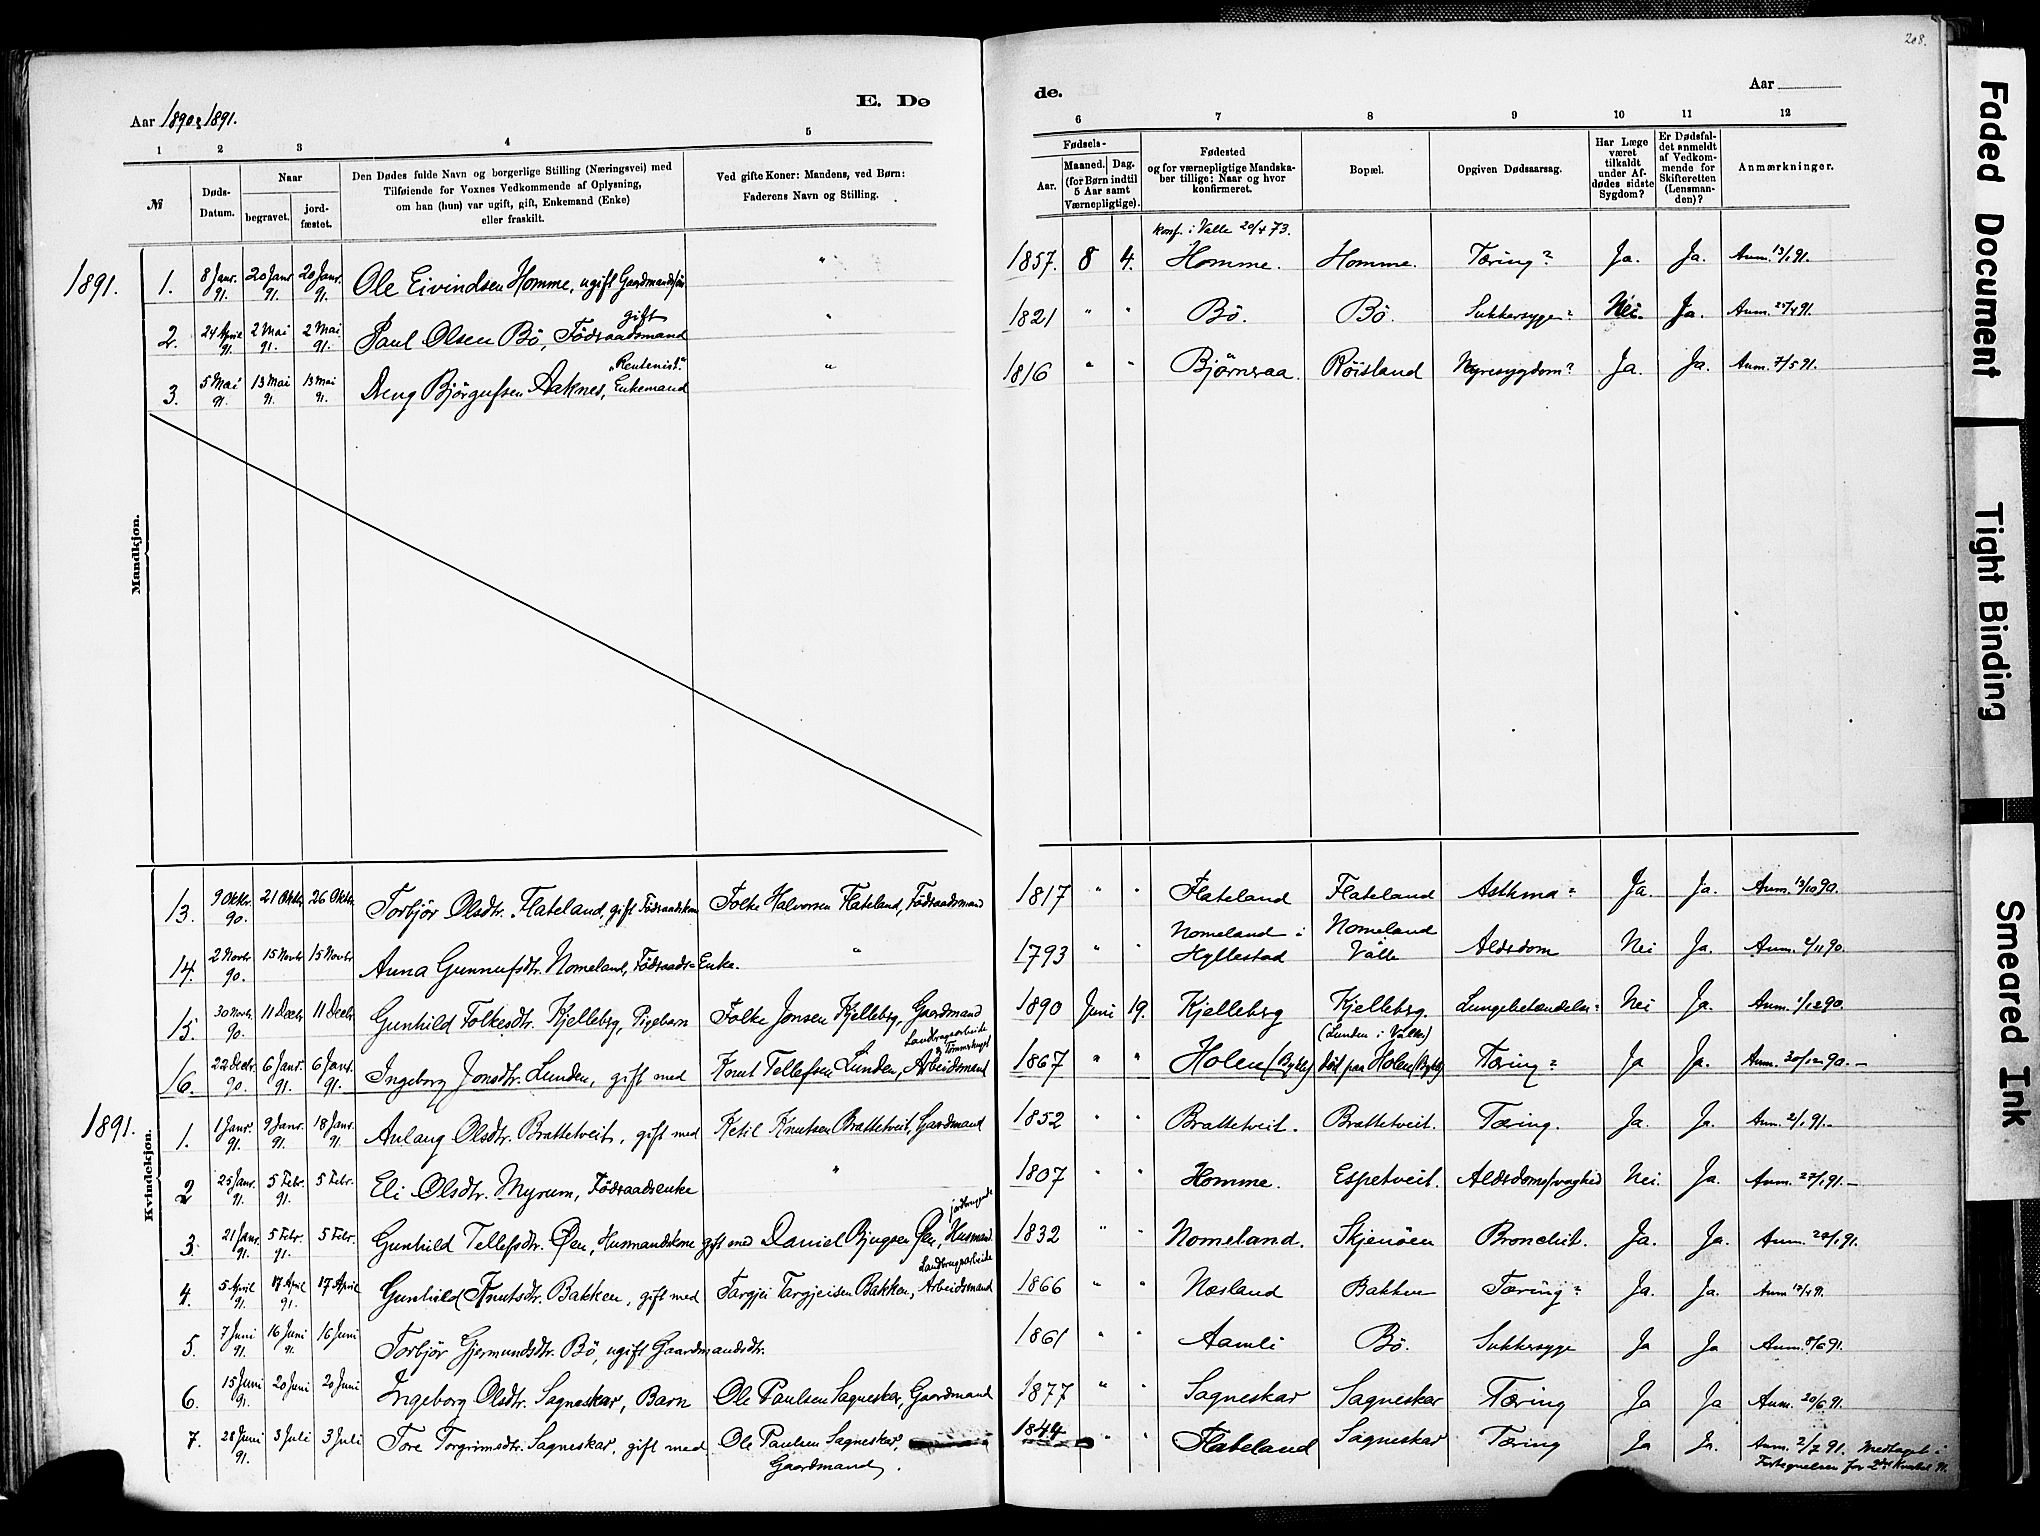 208.
Aar 1890 & 1891.
E. Dø
de.
Aar
1 2 3 4 5
6 7 8 9 10 11 12
№
Døds-Datum.
Naar
begravet.
jord-fæstet.
Den Dødes fulde Navn og borgerlige Stilling (Næringsvei) med
Tilføiende for Voxnes Vedkommende af Oplysning,
om han (hun) var ugift, gift, Enkemand (Enke)
eller fraskilt.
Ved gifte Koner: Mandens, ved Børn:
Faderens Navn og Stilling.
Fødsels-
Aar.
Maaned. Dag.
(for Børn indtil
5 Aar samt
Værnepligtige).
Fødested
og for værnepligtige Mandska-
ber tillige: Naar og hvor
konfirmeret.
Bopæl.
Opgiven Dødsaarsag.
Har Læge
været
tilkaldt
under Af-
dødes sidste
Sygdom?
Er Dødsfal-
det anmeldt
af Vedkom-
mende for
Skifteretten
(Lensman-
den)?
Anmærkninger.
Mandkjøn.
konf. i Valle 20/4 73.
1891. 1. 8 Janr. 91. 20 Janr 91. 20 Janr. 91. Ole Eivindsen Homme, ugift Gaardmandssøn " 1857. 8 4. Homme. Homme. Tæring? Ja. Ja. Anm. 13/1 91.
gift
2. 24 April 91. 2 Mai 91. 2 Mai 91. Paul Olsen Bö, Födraadsmand " 1821 " " Bö. Bö. Sukkersyge? Nei. Ja. Anm. 25/4 91.
"Rentenist."
3. 5 Mai 91. 13 Mai 91. 13 Mai 91. Dreng Björgufsen Aaknes, Enkemand " 1816 " " Bjørnsaa. Röisland Nyresygdom? Ja. Ja. Anm. 7/5 91.
Kvindekjøn.
13. 9 Oktbr. 90. 21 Oktbr 26 Oktbr. Torbjør Olsdtr. Flateland, gift Födraadskone Folke Halvorsen Flateland, Födraadsmand 1817 " " Flateland Flateland Asthma? Ja. Ja. Anm. 13/10 90.
14. 2 Novbr 90. 15 Novbr 15 Novbr Anna Gunnufsdtr. Nomeland, Födraads-Enke. " 1793 " " Nomeland i Hyllestad Nomeland Valle Aldrdom Nei Ja. Anm. 6/11 90.
15. 30 Novbr. 90. 11 Decbr 11 Decbr Gunhild Folkesdtr. Kjelleberg, Pigebarn Folke Jonsen Kjelleberg, Gaardmand 1890 Juni 19. Kjelleberg Kjelleberg. Lungebetændelse? Nei Ja. Anm. 1/12 90.
Landbrugsarbeide & Tömmerhugst
(Lunden i Valle)
16. 22 Decbr 90. 6 Janr. 91. 6 Janr. 91. Ingeborg Jonsdtr. Lunden, gift med Knut Tellefsen Lunden, Arbeidsmand 1867 " " Holen (Bygl.) död paa Holen (Bygl.) Tæring? Ja Ja. Anm. 30/12 90. —
1891. 1. 1 Janr. 91. 9 Janr. 91. 18 Janr. 91. Aslaug Olsdtr. Brattetveit, gift med Ketil Knutsen Brattetveit, Gaardmand 1852 " " Brattetveit. Brattetveit. Tæring. Ja. Ja. Anm. 2/1 91. —
2 25 Janr. 91. 5 Febr. 91. 5 Febr. Eli Olsdtr. Myrum, Födraadsenke " 1807 " " Homme. Espetveit. Alderdomssvaghed Nei. Ja. Anm. 27/1 91. —
jordbrugende
3. 21 Janr. 91. 5 Febr. 91. 5 Febr. Gunhild Tellefsdtr. Øen, Husmandskone gift med Daniel Bjugsen Øen, Husmand. 1832 " " Nomeland. Skjenöen Bronchit. Ja. Ja. Anm. 28/1 91.
Landbrugsarbeide
4. 5 April 91. 17 April 91. 17 April Gunhild Knutsdtr. Bakken, gift med Targjei Targjeisen Bakken, Arbeidsmand 1866 " " Næsland Bakken Tæring? Ja. Ja. Anm. 13/4 91.
5. 7 Juni 91. 16 Juni 91. 16 Juni Torbjør Gjermundsdtr. Bö, ugift Gaardmandsdtr. 1861 " " Aamli Bö. Sukkersyge Ja Ja Anm. 8/6 91.
6. 15 Juni 91. 20 Juni 20 Juni Ingeborg Olsdtr. Sagneskar, Barn Ole Paulsen Sagneskar, Gaardmand 1877 " " Sagneskar Sagneskar Tæring Ja Ja Anm. 20/6 91.
7. 28 Juni 91. 3 Juli 3 Juli Tore Torgrimsdtr. Sagneskar, gift med Ole Paulsen Sagneskar, Gaardmand. 1844 " " Flateland Sagneskar Tæring Ja Ja. Anm. 2/7 91. Medtaget i Fortegnelsen for 2det Kvartal 91.
Faded Document
Tight Binding
Smeared Ink